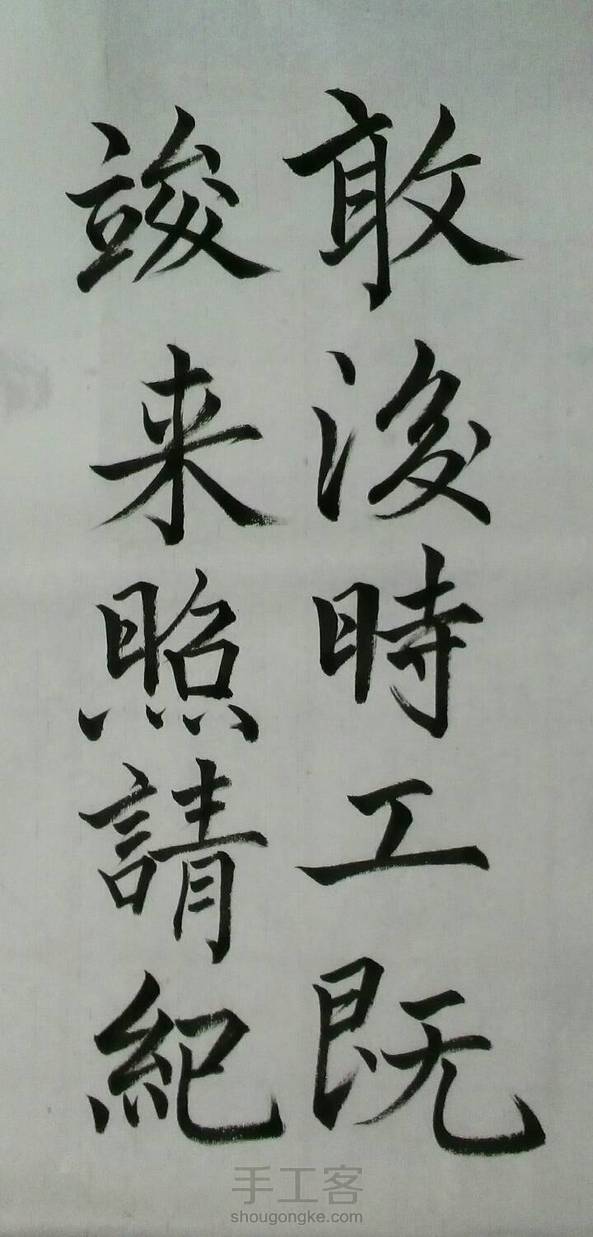 敢後時工既
竣来照請紀
手工客
shougongke.com